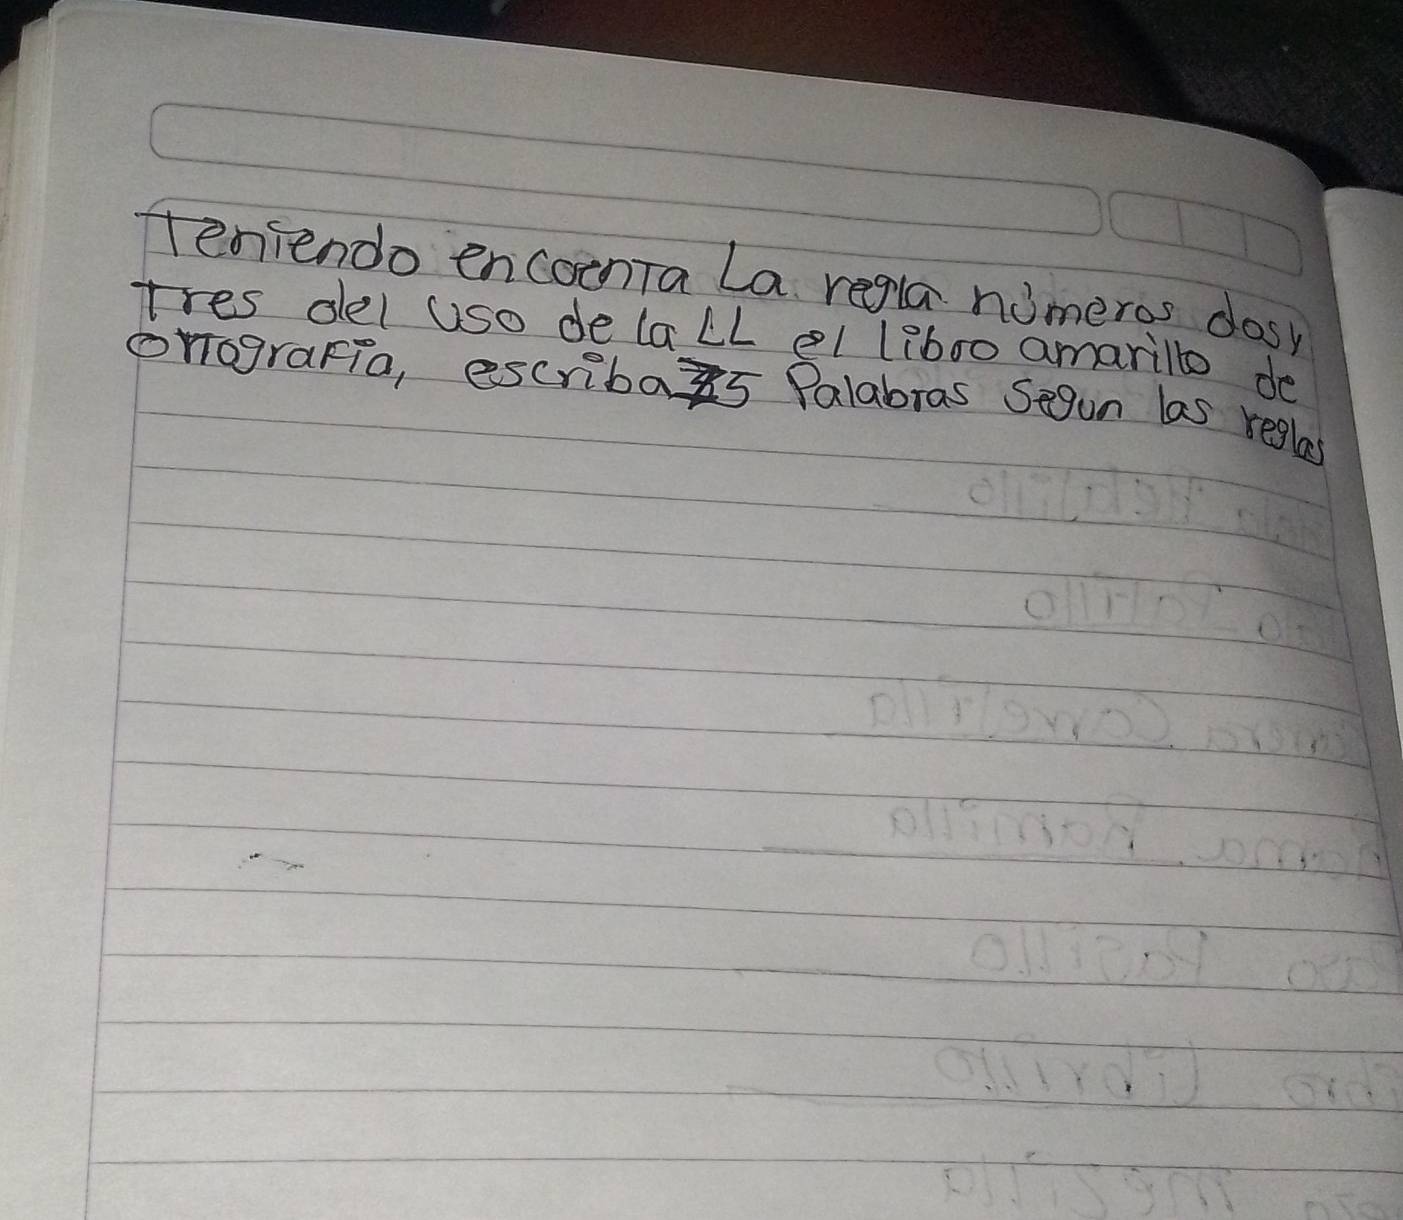 Teniendo en cuenta La regla números dos y
tres del uso de la LL el libro amarillo de
ortografía, escriba 5 Palabras Segun las reglas